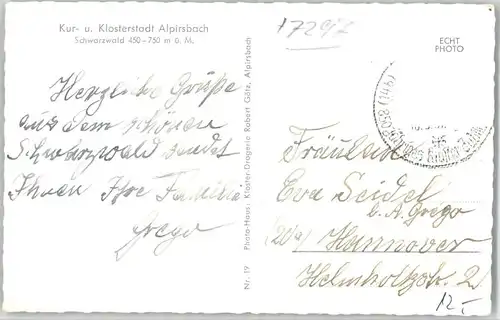 Kur- u. Klosterstadt Alpirsbach
Schwarzwald 450-750 m ü. M.
Herzliche Grüße
aus dem schönen
Schwarzwald sendet
Ihnen Ihre Familie
Grego
Nr. 19 Photo-Haus: Kloster-Drogerie Robert Götz, Alpirsbach
17297
ECHT
PHOTO
Fräulein
Eva Seidel
b. A. Grego
(20a) Hannover
Helmholtzstr. 2
12,-